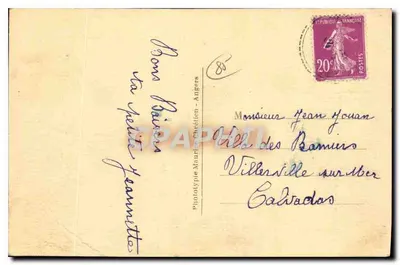 Bons Baisers
ta petite Jeannette
Phototypie - Angers
85
REPUBLIQUE FRANÇAISE
20c
POSTES
Monsieur Jean Jouan
Villa des
Villerville sur Mer
Calvados